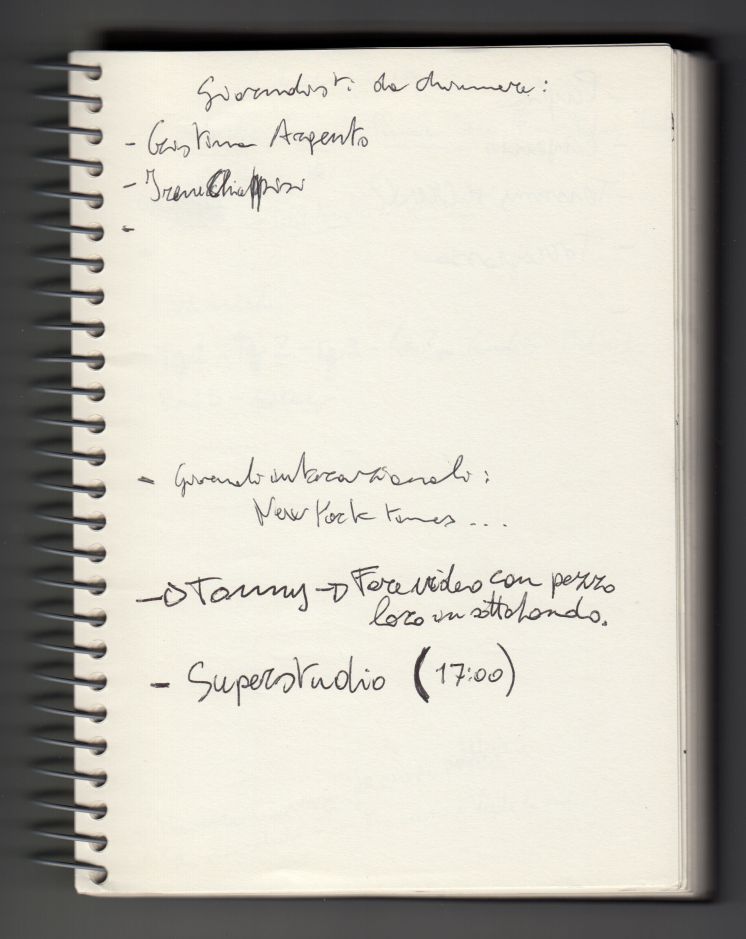 Giornalisti da chiamare:
- Cristina Argento
- Irene Chiappisi
-
- Giornali internazionali:
New York Times ...
→ Tommy → Fare video con pezzo
loro in sottofondo.
- Superstudio (17:00)